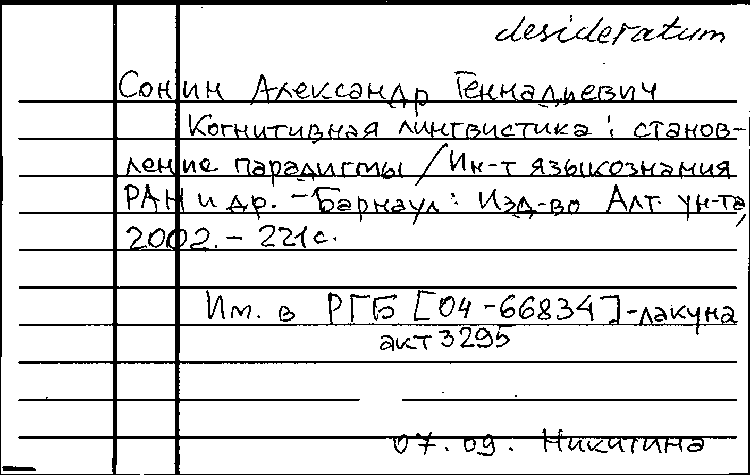 desideratum
Сонин Александр Геннадьевич
Когнитивная лингвистика : станов-
ление парадигмы / Ин-т языкознания
РАН и др. - Барнаул : Изд-во Алт. ун-та,
2002. - 221 с.
Им. в РГБ [04-66834] - лакуна
акт 3295
07.09. Никитина